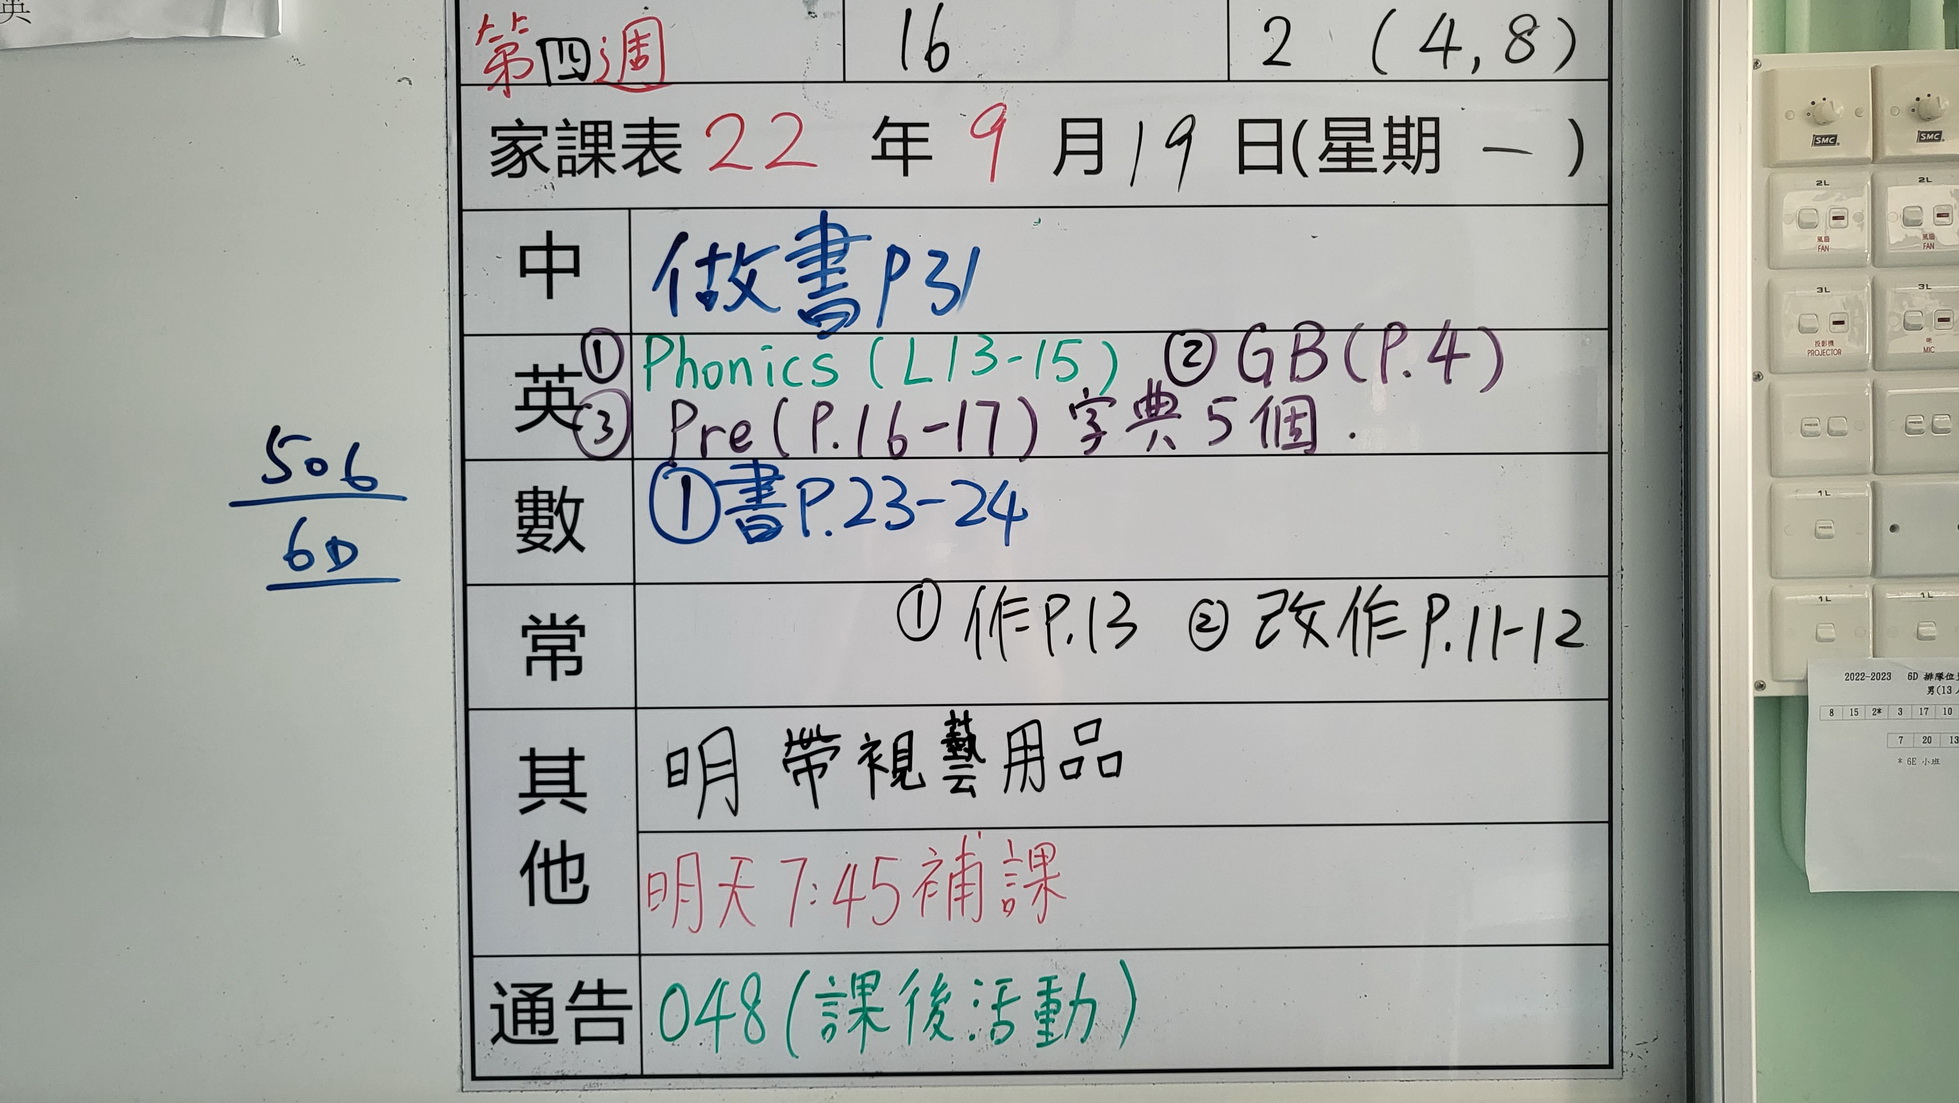 英
第四週 16 2 (4,8)
家課表 22 年 9 月 19 日(星期 一 )
中 做書P31
英 ① Phonics (L13-15) ② GB(P.4)
③ Pre(P.16-17) 字典5個.
506
6D
數 ①書P.23-24
常 ① 作P.13 ② 改作P.11-12
其他 明 帶視藝用品
明天7:45補課
通告 048(課後活動)
SMC SMC
2L 2L
風扇 風扇
FAN FAN
3L 3L
投影機
PROJECTOR MIC
1L
1L 1L
2022-2023 6D 排隊位
男(13
8 15 2* 3 17 10
7 20 13
* 6E 小班